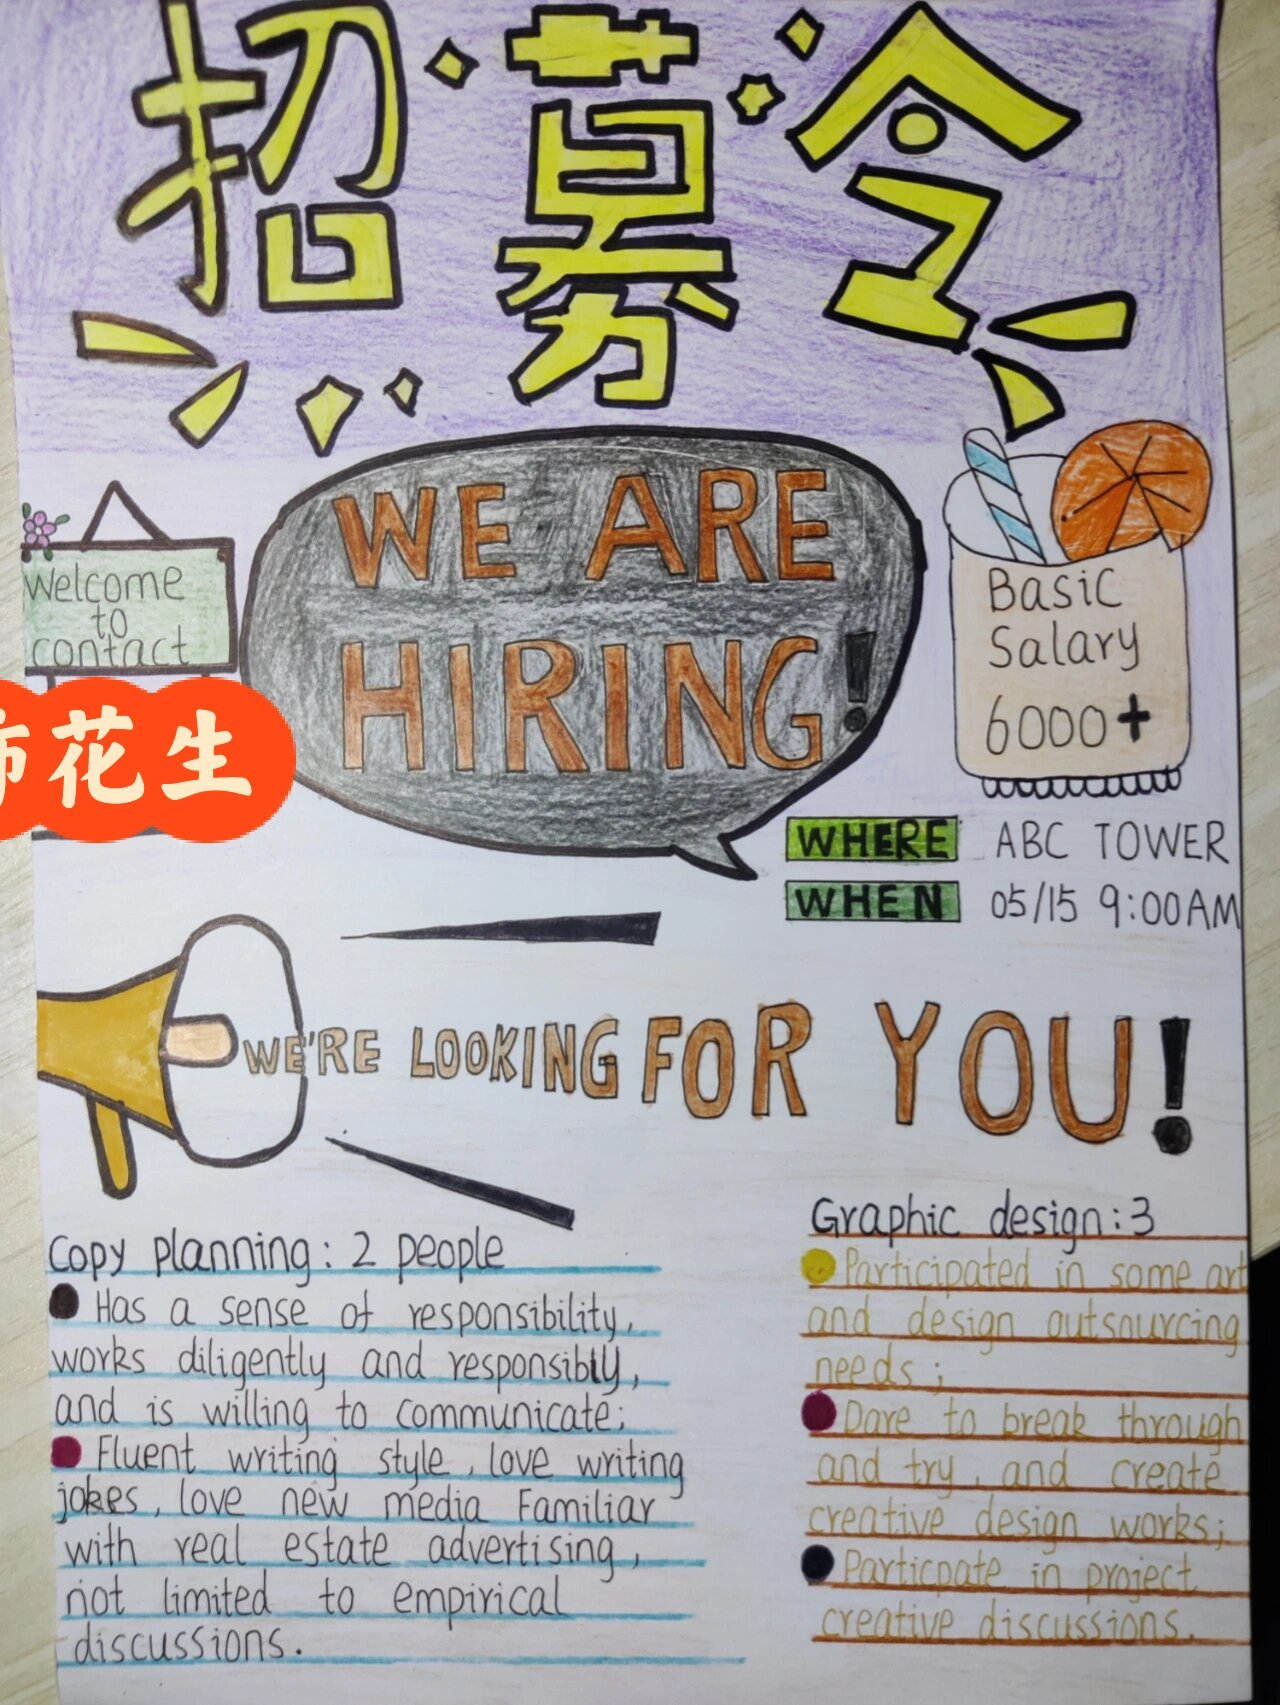 招募令
WE ARE
HIRING!
Welcome
to
contact
花生
Basic
Salary
6000+
WHERE ABC TOWER
WHEN 05/15 9:00AM
WE'RE LOOKING FOR YOU!
Copy planning: 2 people
Has a sense of responsibility,
works diligently and responsibly,
and is willing to communicate;
Fluent writing style, love writing
jokes, love new media Familiar
with real estate advertising,
not limited to empirical
discussions.
Graphic design:3
Participated in some art
and design outsourcing
needs;
Dare to break through
and try, and create
creative design works;
Particpate in project
creative discussions.